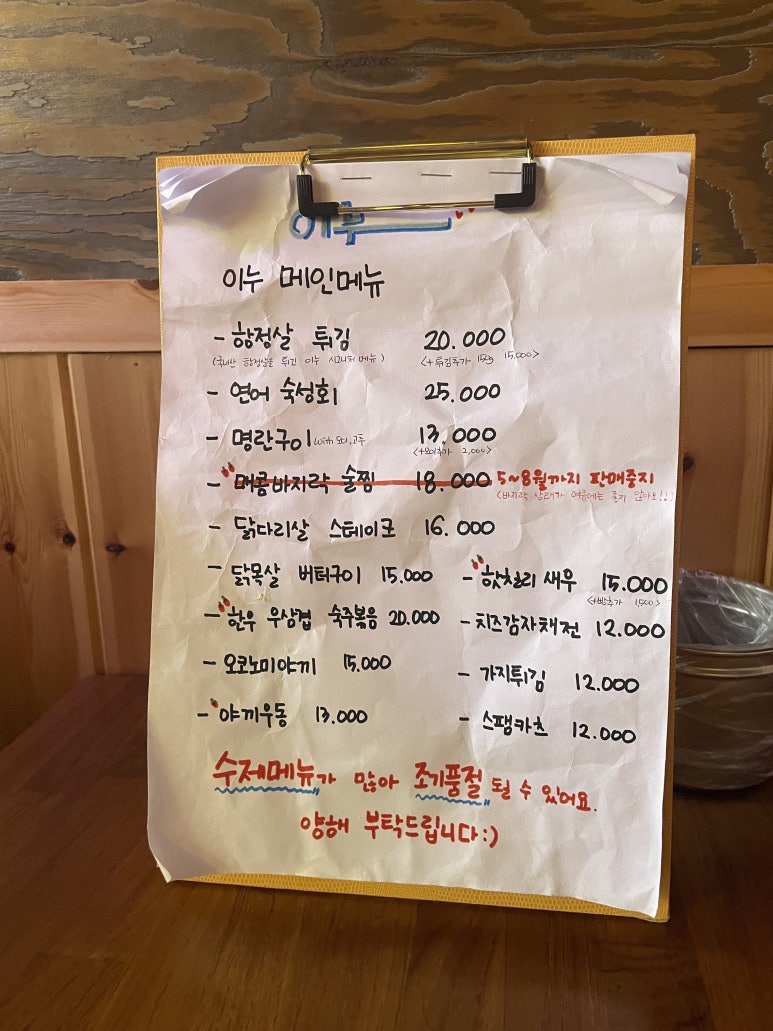 이누
이누 메인메뉴
- 항정살 튀김 20.000
(국내산 항정살을 튀긴 이누 시그니처 메뉴) <+튀김추가 150g 15,000>
- 연어 숙성회 25.000
- 명란구이 with 오이,고추 13,000
<+오이추가 2,000>
- 매콤바지락 술찜 18.000 5~8월까지 판매중지
(바지락 상태가 여름에는 좋지 않아요!!)
- 닭다리살 스테이크 16.000
- 닭목살 버터구이 15.000
- 한우 우삼겹 숙주볶음 20.000
- 오코노미야끼 15.000
- 야끼우동 13.000
- 핫칠리 새우 15.000
<+빵추가 1500>
- 치즈감자채전 12.000
- 가지튀김 12.000
- 스팸카츠 12.000
수제메뉴가 많아 조기품절 될 수 있어요.
양해 부탁드립니다:)